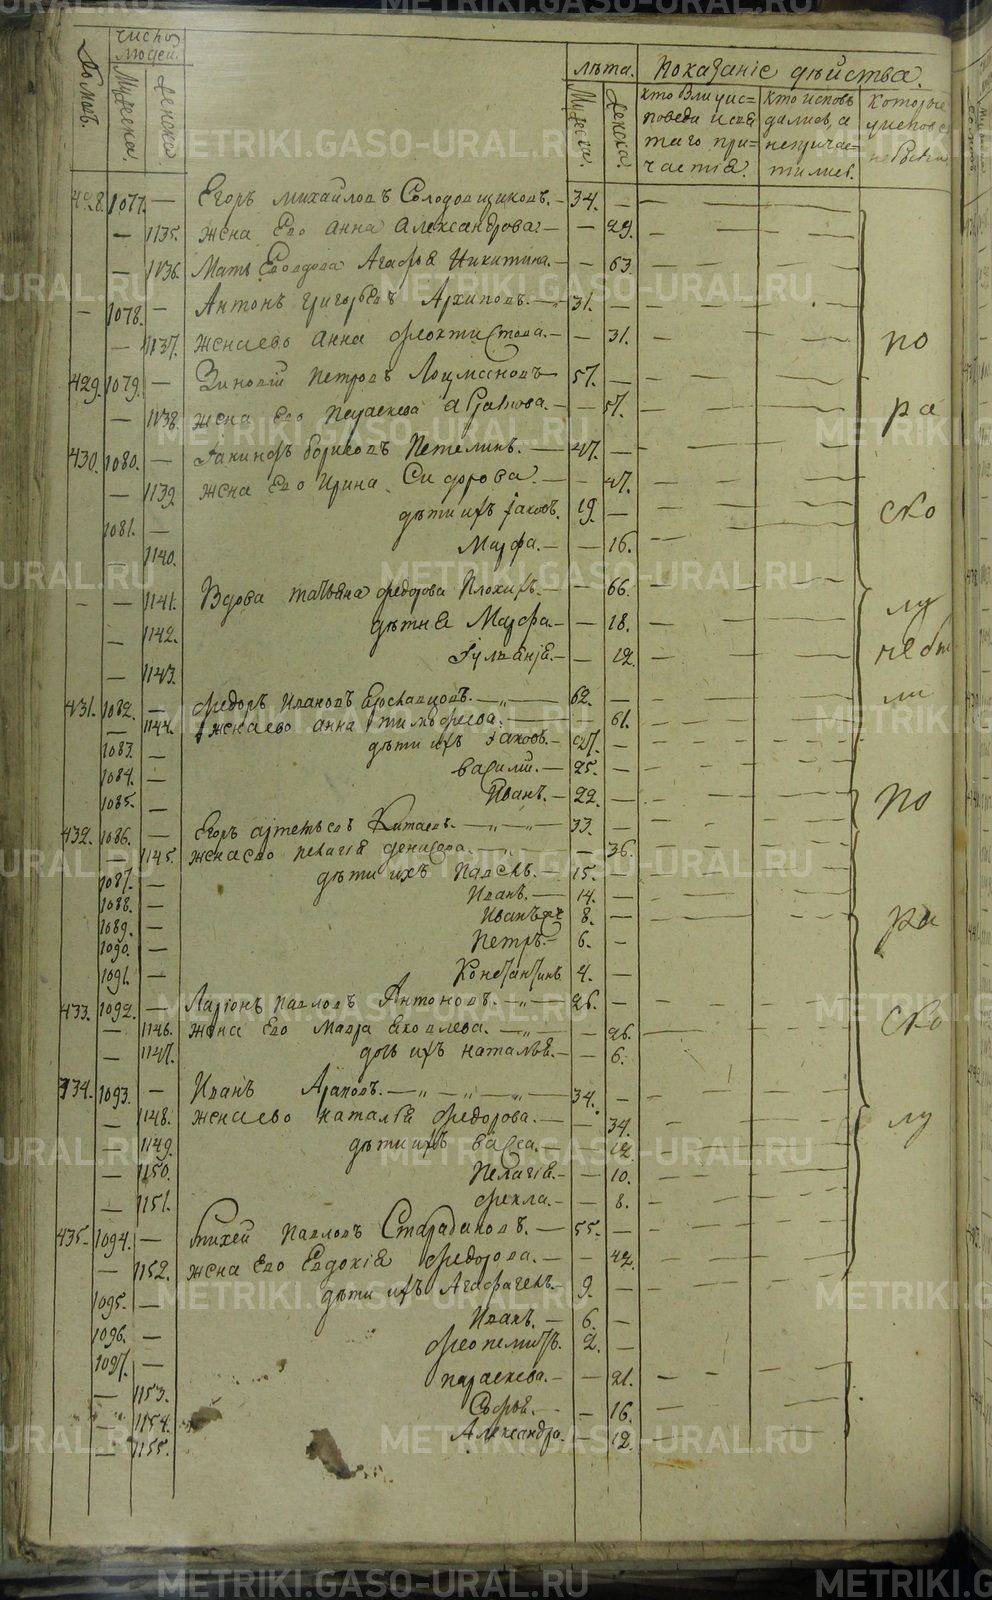 Домовъ.
число людей.
Мужеска.
Женска
лѣта.
Мужеска.
Женска.
Показанїе дѣйства.
кто были ис=
повѣди и свя
таго при=
частїя.
кто исповѣ
дались, а
непричас=
тились.
которые
428. 1077. — Егоръ Михайловъ Солодовщиковъ. — 34. —
— 1135. жена Ево Анна Александрова — — 29.
— 1136. Мать Ево вдова Агафья Никитина. — — 63.
— 1078. — Антонъ Григорьевъ Архиповъ. — 31. —
— 1137. жена ево Анна Феоктистова — — 31.
429. 1079. — Зиновій Петровъ Лоцмановъ 57. —
— 1138. жена Ево Параскева — — 57.
430. 1080. — Іакинфъ Борисовъ Петелинъ. — 47. —
— 1139. жена Ево Ирина Сидорова. — — 47.
1081. — дѣти ихъ Іаковъ. 19. —
— 1140. Марфа. — — 16.
— — 1141. Вдова Татьяна Федорова Плохихъ. — — 66.
— 1142. дѣти Ея Марфа — — 18.
— 1143. Іульянїя. — — 12.
431. 1082. — Федоръ Ивановъ Ерославцовъ. — „ — 62. —
— 1144. жена ево анна тимофеева. — — 61.
1083. — дѣти ихъ Іаковъ. — 27. —
1084. — Василий. — 25. —
1085. — Иванъ. — 22. —
432. 1086. — Егоръ артемьевъ Китаевъ. — „ — „ — 33. —
— 1145. жена ево пелагїя денисова. — 36.
1087. — дѣти ихъ Павелъ — 15. —
1088. — Иванъ. — 14. —
1089. — Иванъ же 8. —
1090. — Петръ. — 6. —
1091. — Константинъ 4. —
433. 1092. — Ларїонъ Павловъ Антоновъ. — „ — 26. —
— 1146. жена Ево Мавра Яковлева. — „ — — 26.
— 1147. дочь ихъ наталья. — — 6.
434. 1093. — Иванъ Араповъ. — „ — „ — „ — 34. —
— 1148. жена ево наталья Федорова. — — 34.
— 1149. дѣти ихъ Васса. — — 12.
— 1150. Пелагїя. — — 10.
— 1151. Фекла. — — 8.
435. 1094. — Тихей Павловъ Старадиновъ. — 55. —
— 1152. жена Ево Евдокїя Федорова. — — 42.
1095. — дѣти ихъ Агафагелъ — 9. —
1096. — Иванъ. — 6. —
1097. — Феопемптъ. 2. —
— 1153. параскева. — — 21.
— 1154. Софья. — 16.
— 1155. Александра. — 12.
по
ра
ско
лу
не бы
ли
по
ра
ско
лу
METRIKI.GASO-URAL.RU